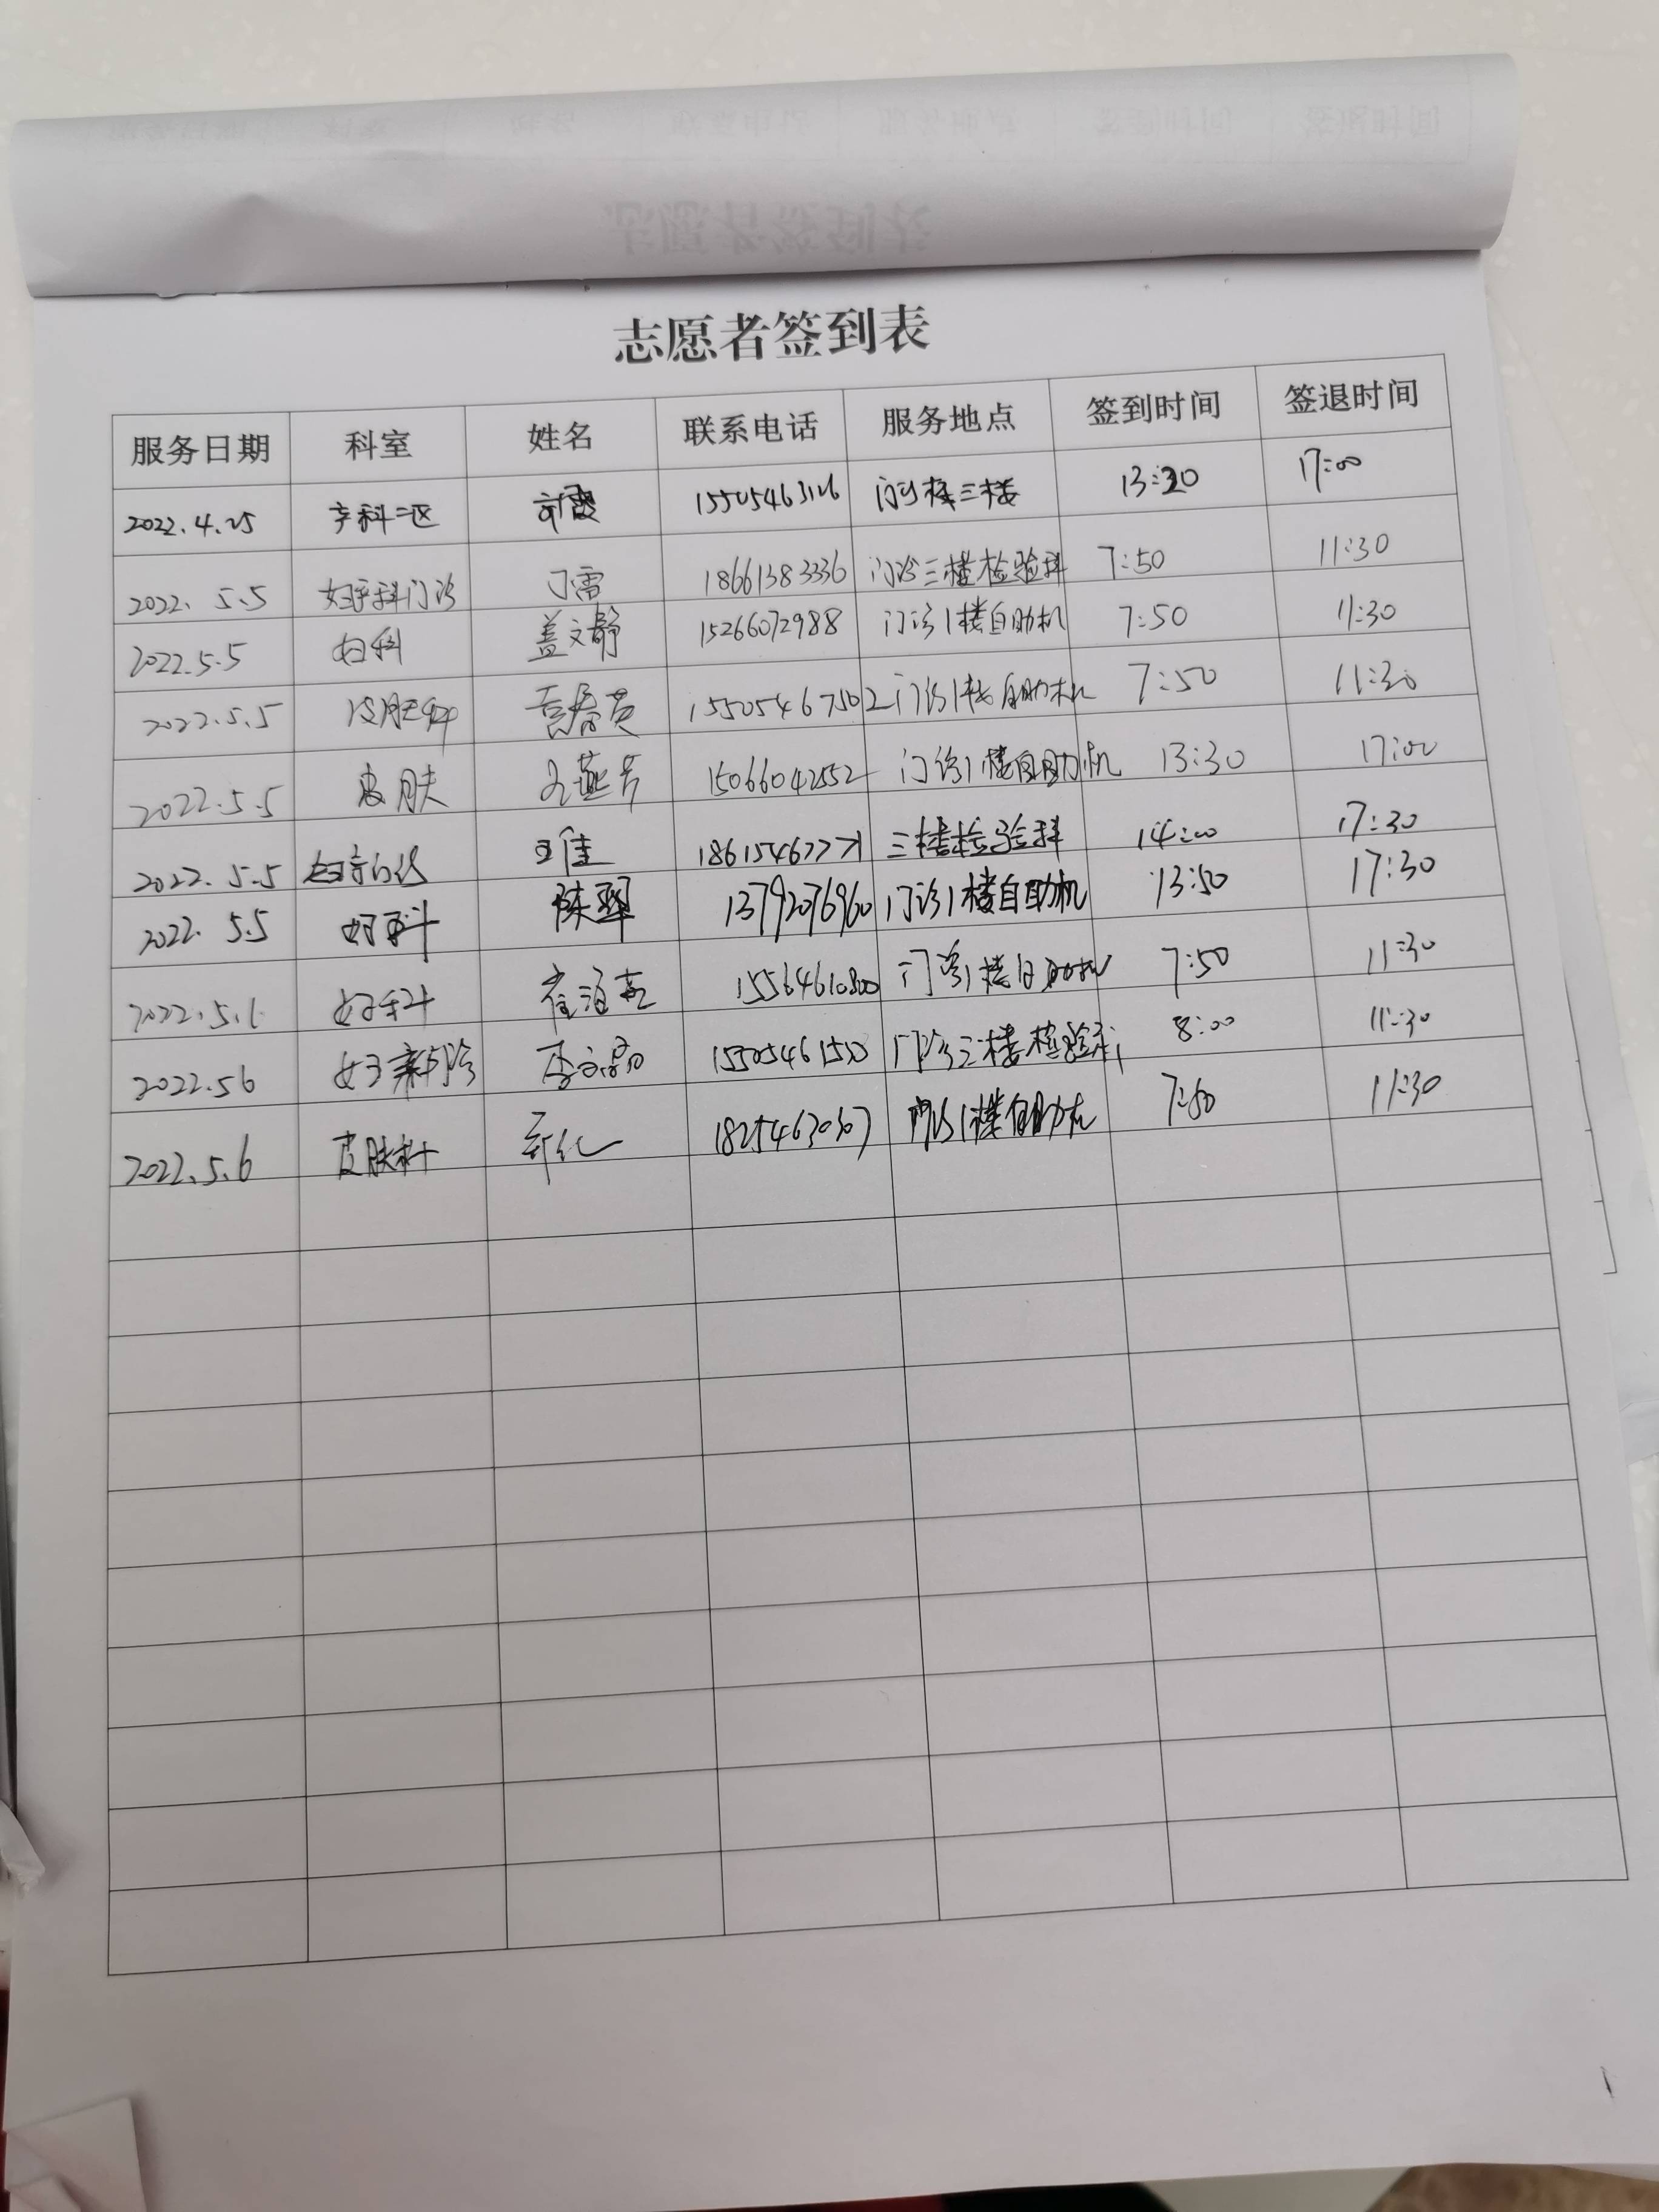 志愿者签到表
服务日期 科室 姓名 联系电话 服务地点 签到时间 签退时间
2022.4.25 产科二区 15505463126 门诊楼三楼 13:20 17:00
2022.5.5 妇科门诊 丁雷 18661383336 门诊三楼检验科 7:50 11:30
2022.5.5 妇科 盖文静 15266072988 门诊1楼自助机 7:50 11:30
2022.5.5 皮肤科 15505467502 门诊1楼自助机 7:50 11:30
2022.5.5 皮肤 15066042552 门诊1楼自助机 13:30 17:00
2022.5.5 王佳 18615467771 三楼检验科 14:00 17:30
2022.5.5 妇科 陈翠 13792076960 门诊1楼自助机 13:50 17:30
2022.5.6 妇科 15564610800 门诊1楼自助机 7:50 11:30
2022.5.6 15505461550 门诊三楼检验科 8:00 11:30
2022.5.6 皮肤科 18254630307 门诊1楼自助机 7:50 11:30